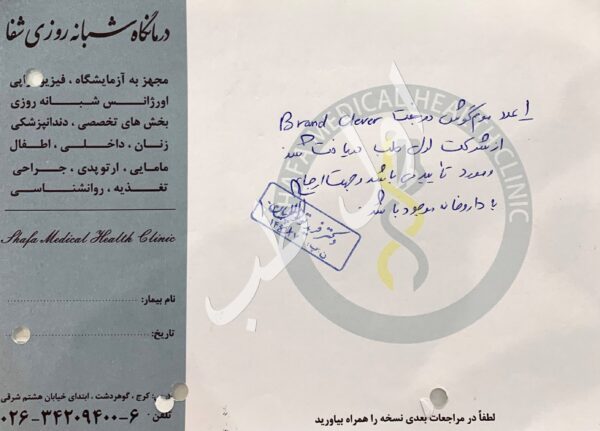 درمانگاه شبانه روزی شفا
مجهز به آزمایشگاه ، فیزیوتراپی
اورژانس شبانه روزی
بخش های تخصصی ، دندانپزشکی
زنان ، داخلی ، اطفال
مامایی ، ارتوپدی ، جراحی
تغذیه ، روانشناسی
Shafa Medical Health Clinic
نام بیمار:
تاریخ:
کرج ، گوهردشت ، ابتدای خیابان هشتم شرقی
تلفن: ۰۲۶-۳۴۲۰۹۴۰۰-۶
۱ عدد موم گوش Brand Clever
از شرکت اول طب دریافت شد
و مورد تأیید می باشد و جهت ارجاع
با داروخانه موجود باشد.
دکتر
SHAFA MEDICAL HEALTH CLINIC
اول طب
لطفاً در مراجعات بعدی نسخه را همراه بیاورید